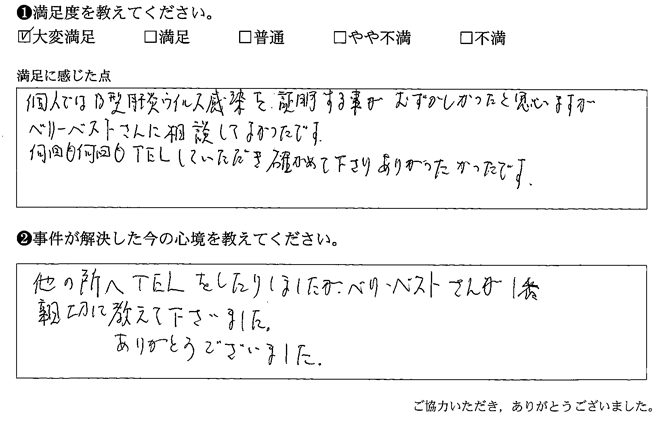 ❶満足度を教えてください。
☑大変満足　□満足　□普通　□やや不満　□不満
満足に感じた点
個人ではB型肝炎ウイルス感染を、証明する事が むずかしかったと思いますが
ベリーベストさんに相談してよかったです。
何回も何回もTELしていただき確かめて下さりありがったかったです。
❷事件が解決した今の心境を教えてください。
他の所へTELをしたりしましたが、ベリーベストさんが1番
親切に教えて下さいました。
ありがとうございました。
ご協力いただき，ありがとうございました。